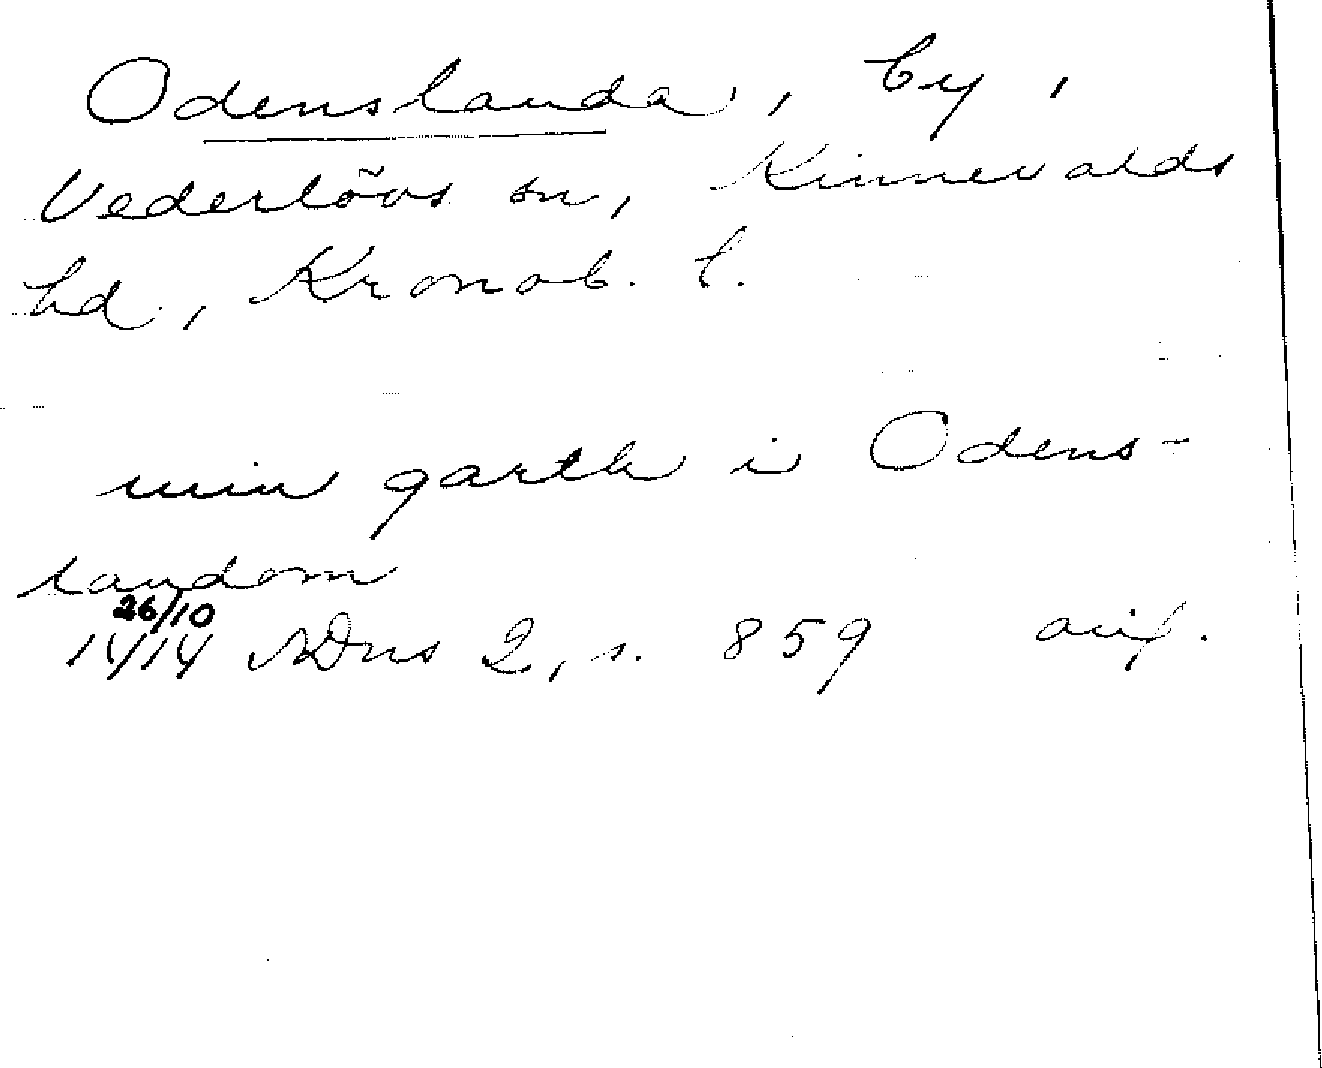 Odenslanda, by,
Vederlövs sn, Kinnevalds
hd, Kronob. l.
min garth i Odens-
landom
26/10
1414 SDns 2, s. 859 avf.